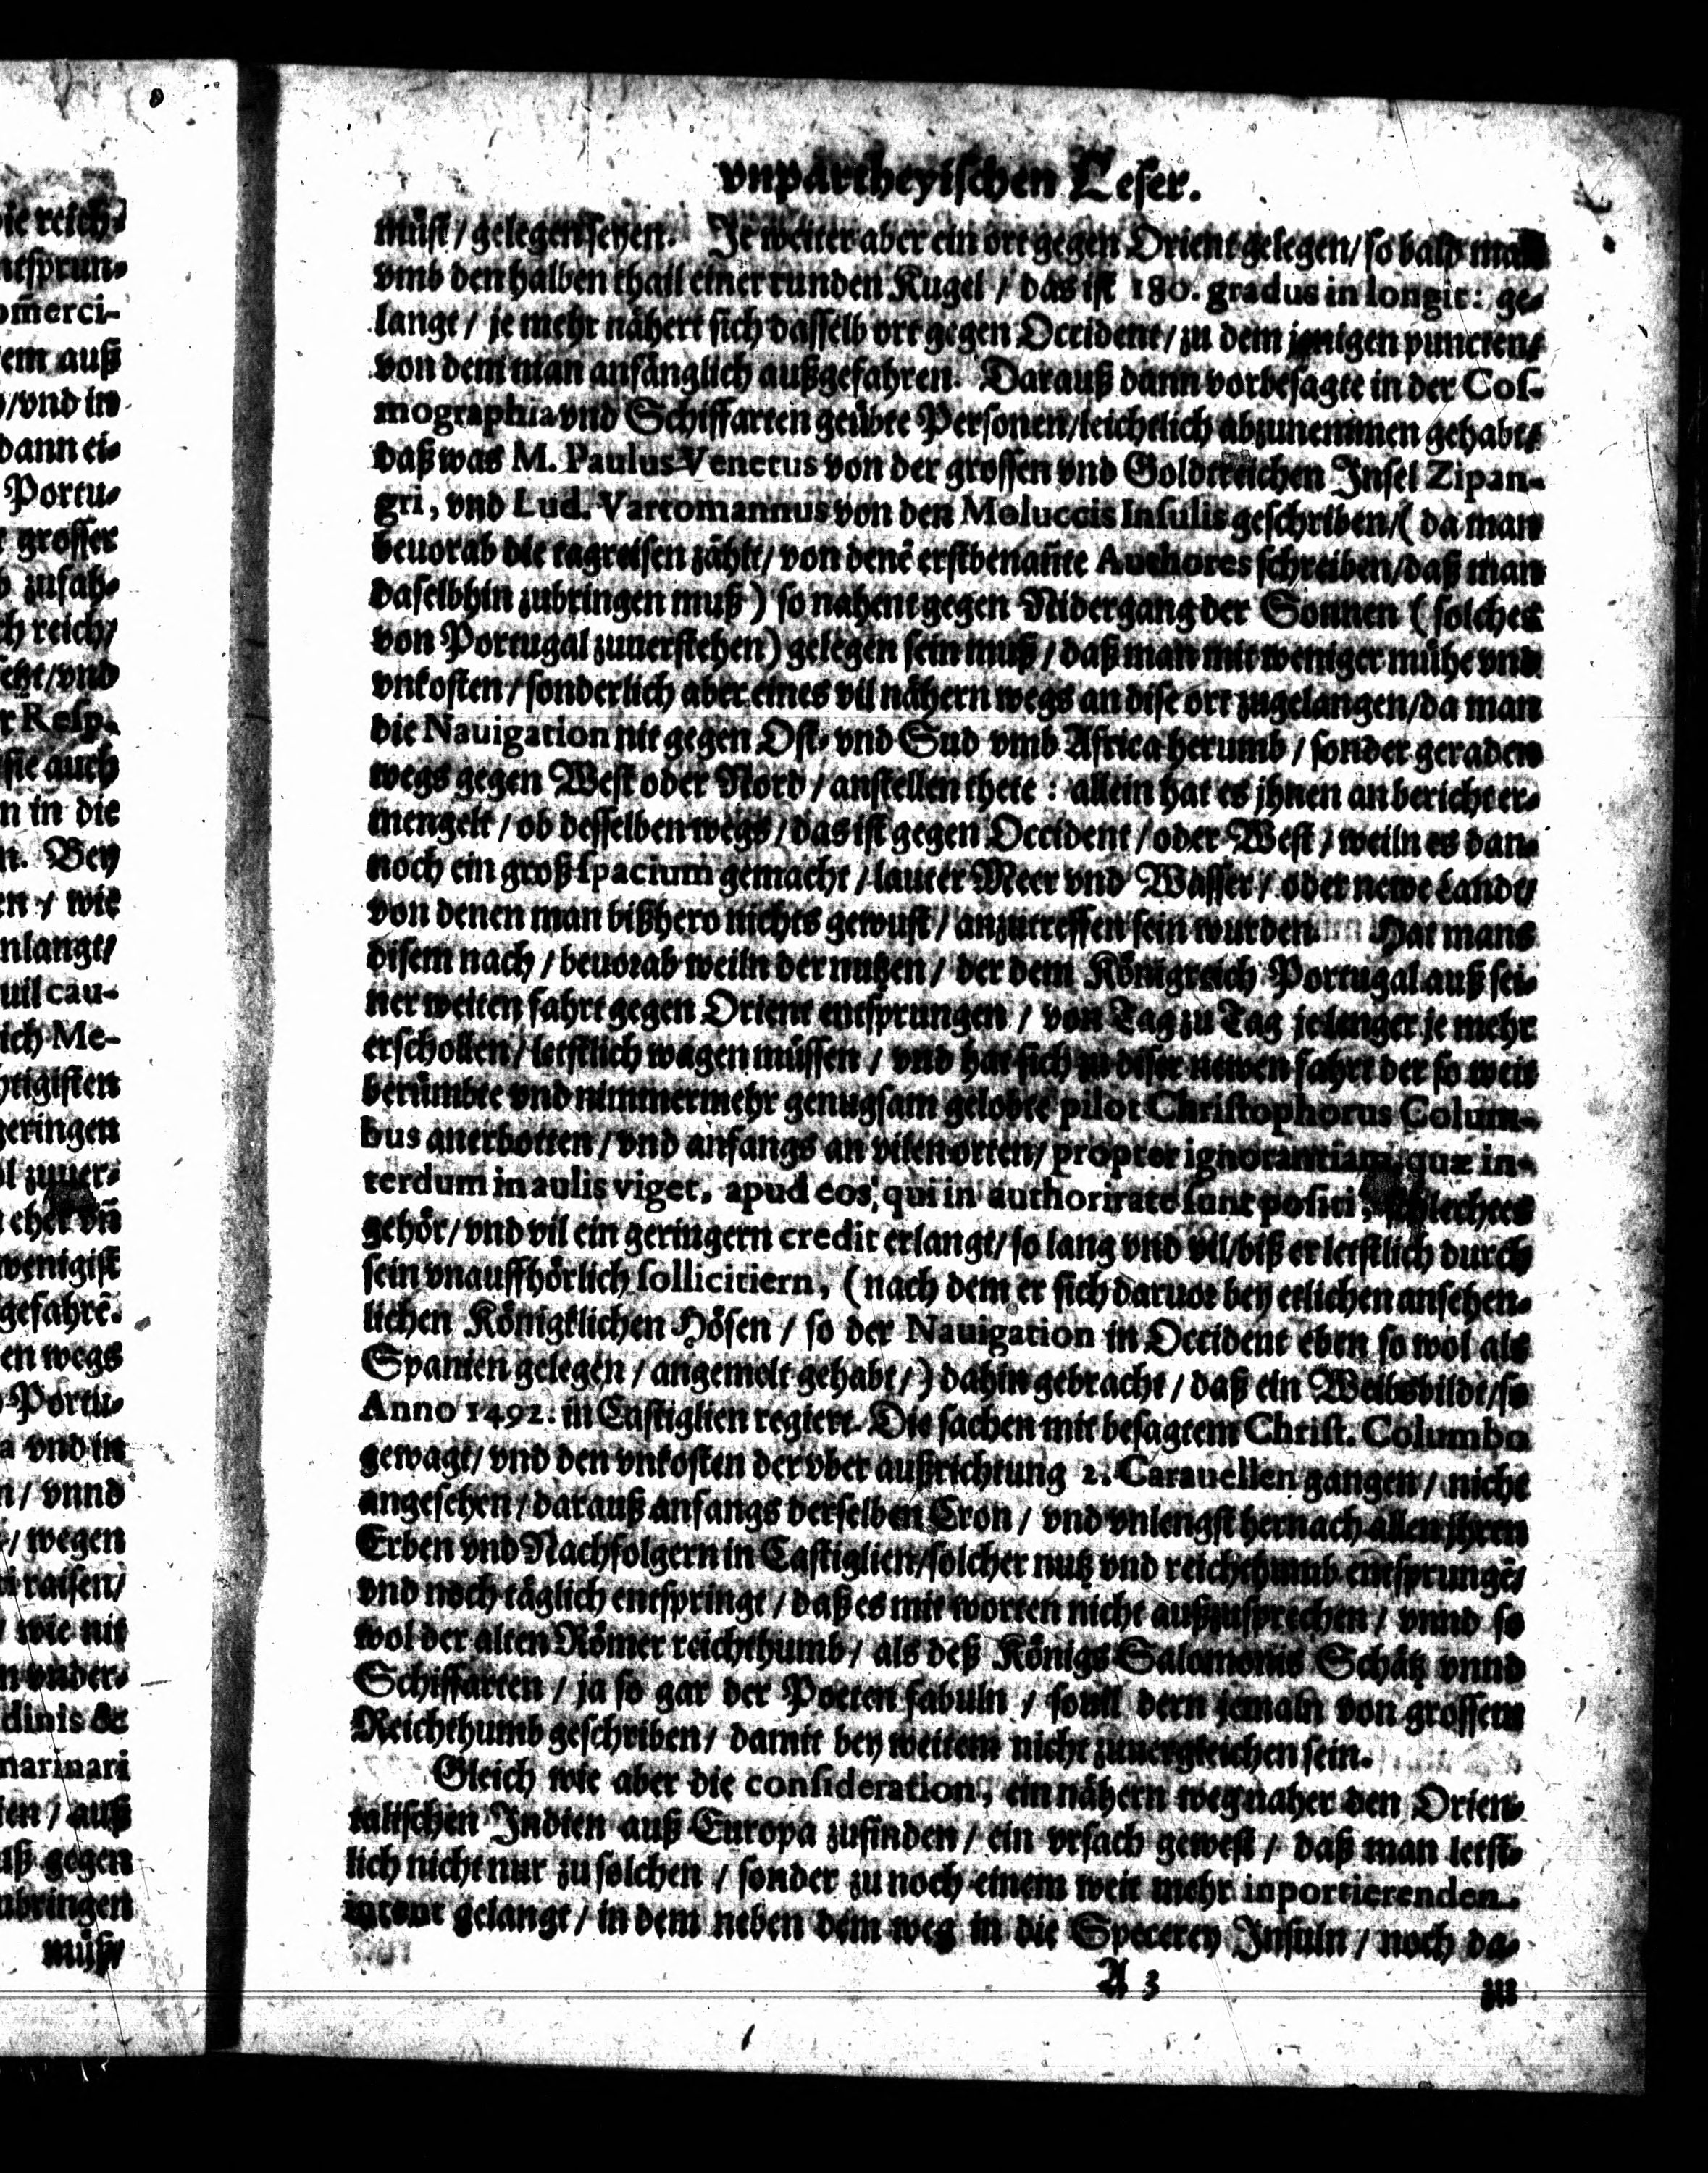 vnpartheyischen Leser.
müst / gelegen seyen. Je weiter aber ein ort gegen Orient gelegen / so bald man
vmb den halben thail einer runden Kugel / das ist 180. gradus in longit: ge-
langt / je mehr nähert sich dasselb ort gegen Occident / zu dem jenigen puncten /
von dem man anfänglich außgefahren. Darauß dann vorbesagte in der Cos-
mographia vnd Schiffarten geübte Personen / leichtlich abzunemmen gehabt /
daß was M. Paulus Venetus von der grossen vnd Goldtreichen Insel Zipan-
gri, vnd Lud. Vartomannus von den Moluccis Insulis geschriben / ( da man
beuorab die tagreisen zählt / von denē erstbenañte Authores schreiben / daß man
daselbhin zubringen muß ) so nahent gegen Nidergang der Sonnen ( solches
von Portugal zuuerstehen ) gelegen sein muß / daß man mit weniger mühe vnd
vnkosten / sonderlich aber eines vil nähern wegs an dise ort zugelangen / da man
die Nauigation nit gegen Ost- vnd Sud vmb Africa herumb / sonder geraden
wegs gegen West oder Nord / anstellen thete : allein hat es jhnen an bericht er-
mengelt / ob desselben wegs / das ist gegen Occident / oder West / weiln es dan-
noch ein groß spacium gemacht / lauter Meer vnd Wasser / oder newe Landt /
von denen man bißhero nichts gewust / anzutreffen sein wurden. Hat mans
disem nach / beuorab weiln der nutzen / der dem Königreich Portugal auß sei-
ner weiten fahrt gegen Orient entsprungen / von Tag zu Tag je lenger je mehr
erschollen / letstlich wagen müssen / vnd hat sich zu diser newen fahrt der so weit
berümbte vnd nimmermehr genugsam gelobte pilot Christophorus Colum-
bus anerbotten / vnd anfangs an vilen orten / propter ignorantiam, quæ in-
terdum in aulis viget, apud eos, qui in authoritate sunt positi, schlechtes
gehör / vnd vil ein geringern credit erlangt / so lang vnd vil / biß er letstlich durch
sein vnauffhörlich sollicitiern, ( nach dem er sich daruor bey etlichen ansehen-
lichen Königklichen Höfen / so der Nauigation in Occident eben so wol als
Spanien gelegen / angemelt gehabt / ) dahin gebracht / daß ein Weibsbildt / so
Anno 1492. in Castiglien regiert. Die sachen mit besagtem Christ. Columbo
gewagt / vnd den vnkosten der vber außrichtung 2. Carauellen gangen / nicht
angesehen / darauß anfangs derselben Cron / vnd vnlengst hernach allen jhren
Erben vnd Nachfolgern in Castiglien / solcher nutz vnd reichthumb entsprungē /
vnd noch täglich entspringt / daß es mit worten nicht außzusprechen / vnnd so
wol der alten Römer reichthumb / als deß Königs Salomonis Schätz vnnd
Schiffarten / ja so gar der Poeten fabuln / souil dern jemaln von grossem
Reichthumb geschriben / damit bey weitem nicht zuuergleichen sein.
Gleich wie aber die consideration, ein nähern weg naher den Orien-
talischen Indien auß Europa zufinden / ein vrsach gewest / daß man letst-
lich nicht nur zu solchen / sonder zu noch einem weit mehr inportierenden
intent gelangt / in dem neben dem weg in die Specerey Insuln / noch da-
A 3
zu